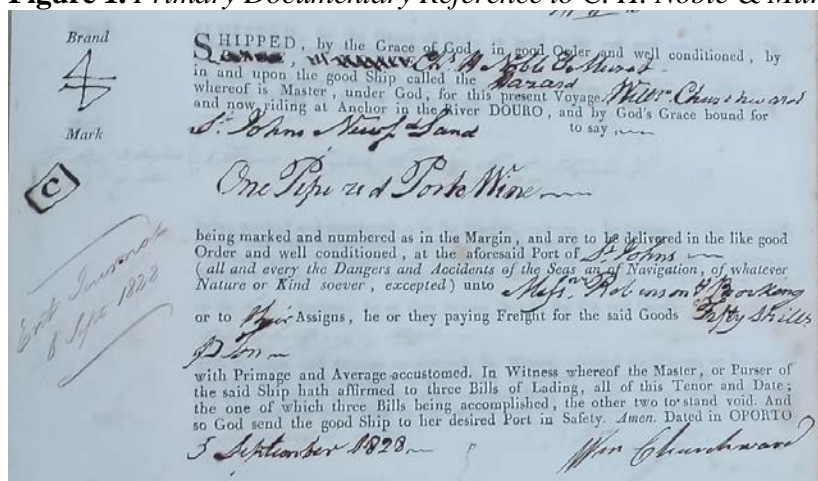 Figure 1. Primary Documentary Reference to C. H. Noble & Mur
Brand
Mark
C
Ent Journal
6 Sept 1828
SHIPPED, by the Grace of God, in good Order and well conditioned, by
Chs H Noble & Murat
in and upon the good Ship called the Hazard
whereof is Master, under God, for this present Voyage Willm Churchward
and now riding at Anchor in the River DOURO, and by God's Grace bound for
St Johns Newfdland to say
One Pipe red Port Wine
being marked and numbered as in the Margin, and are to be delivered in the like good
Order and well conditioned, at the aforesaid Port of St Johns
(all and every the Dangers and Accidents of the Seas an of Navigation, of whatever
Nature or Kind soever, excepted) unto Messrs Robinson & Brooking
or to their Assigns, he or they paying Freight for the said Goods Fifty Shills
P Ton
with Primage and Average accustomed. In Witness whereof the Master, or Purser of
the said Ship hath affirmed to three Bills of Lading, all of this Tenor and Date;
the one of which three Bills being accomplished, the other two to stand void. And
so God send the good Ship to her desired Port in Safety. Amen. Dated in OPORTO
5 September 1828
Wm Churchward